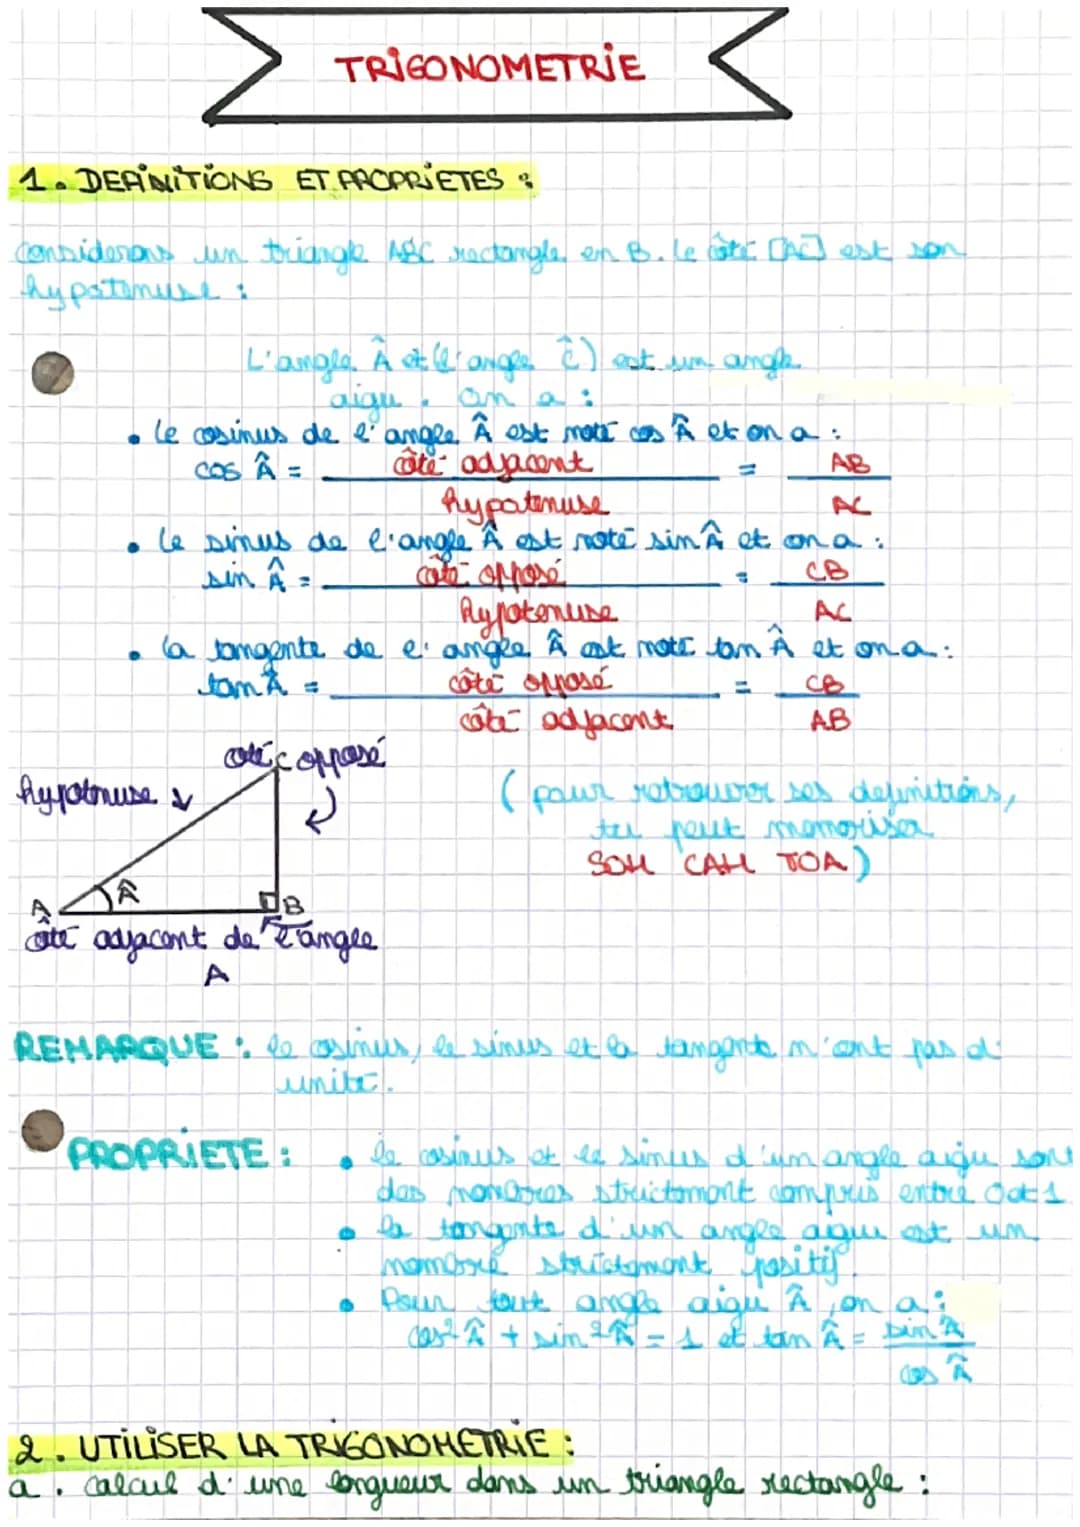 TRIGONOMETRIE
1. DEFINITIONS ET PROPRIETES :
Considerons un triangle ABC rectangle en B. Le côté [AC] est son
hypotenuse :
L'angle Â et (l'angle Ĉ) est un angle
aigu. On a :
• Le cosinus de l'angle Â est noté cos Â et on a :
cos Â = côté adjacent / hypotenuse = AB / AC
• Le sinus de l'angle Â est noté sin Â et on a :
sin Â = côté opposé / hypotenuse = CB / AC
• La tangente de l'angle Â est noté tan Â et on a :
tan Â = côté opposé / côté adjacent = CB / AB
côté opposé
C
hypotnuse
(pour retrouver ses definitions,
tu peut memoriser
SOH CAH TOA)
A Â B
côté adjacent de l'angle
A
REMARQUE : le cosinus, le sinus et la tangente n'ont pas d'
unité.
PROPRIETE : • le cosinus et le sinus d'um angle aigu sont
des nombres strictement compris entre 0 et 1
• la tangente d'un angle aigu est un
nombre strictement positif.
• Pour tout angle aigu Â, on a :
cos² Â + sin² Â = 1 et tan Â = sin Â / cos Â
2. UTILISER LA TRIGONOMETRIE :
a. calcul d'une longueur dans un triangle rectangle :